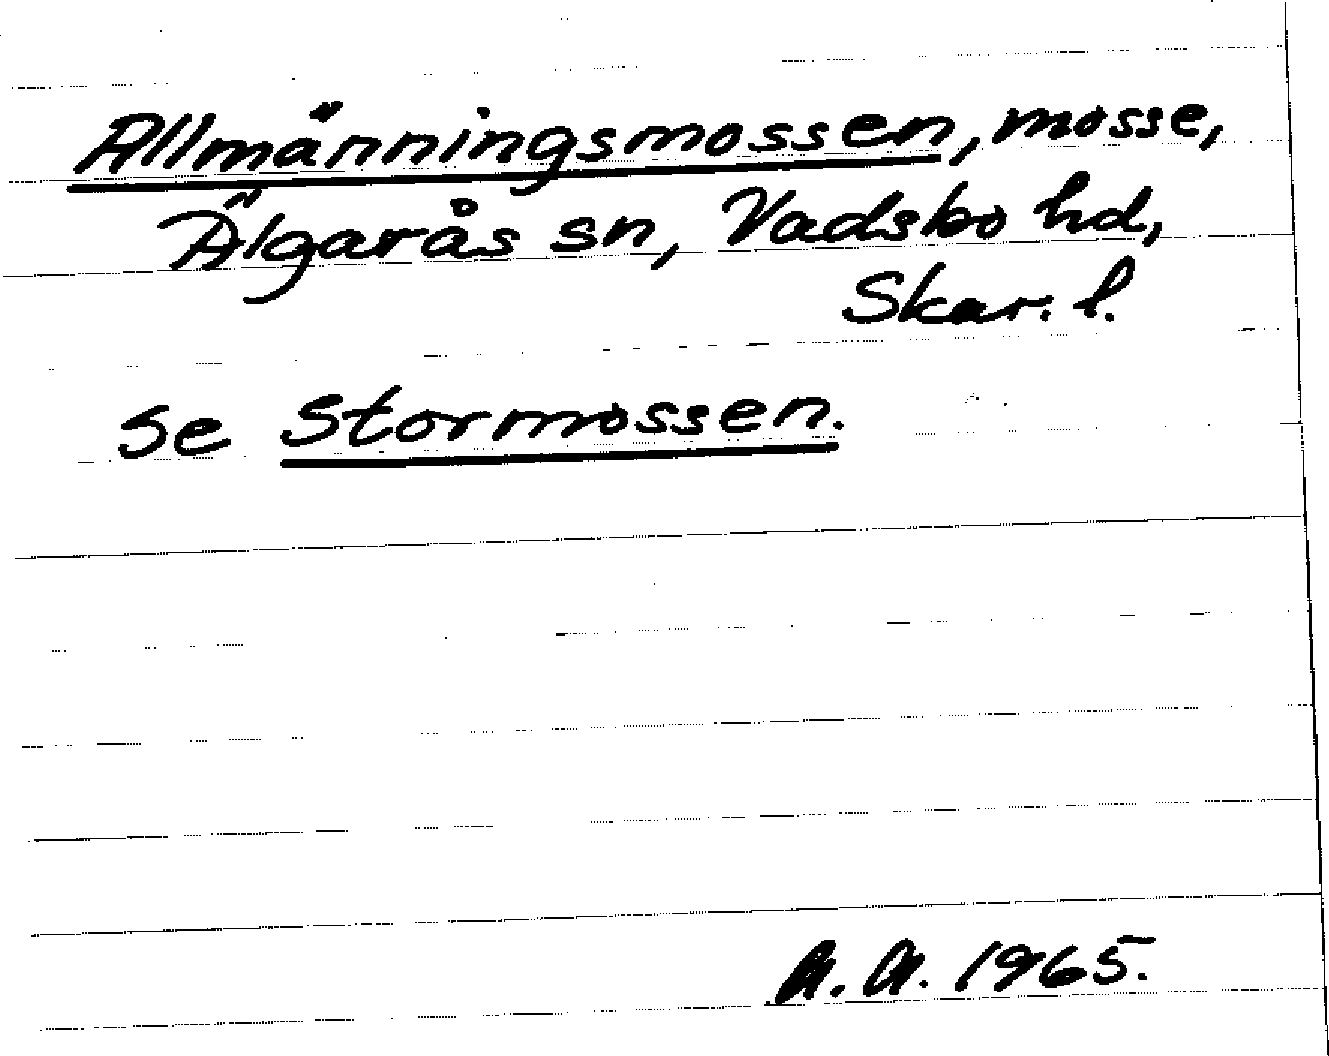 Allmänningsmossen, mosse,
Älgarås sn, Vadsbo hd,
Skar. l.
se Stormossen.
A. A. 1965.